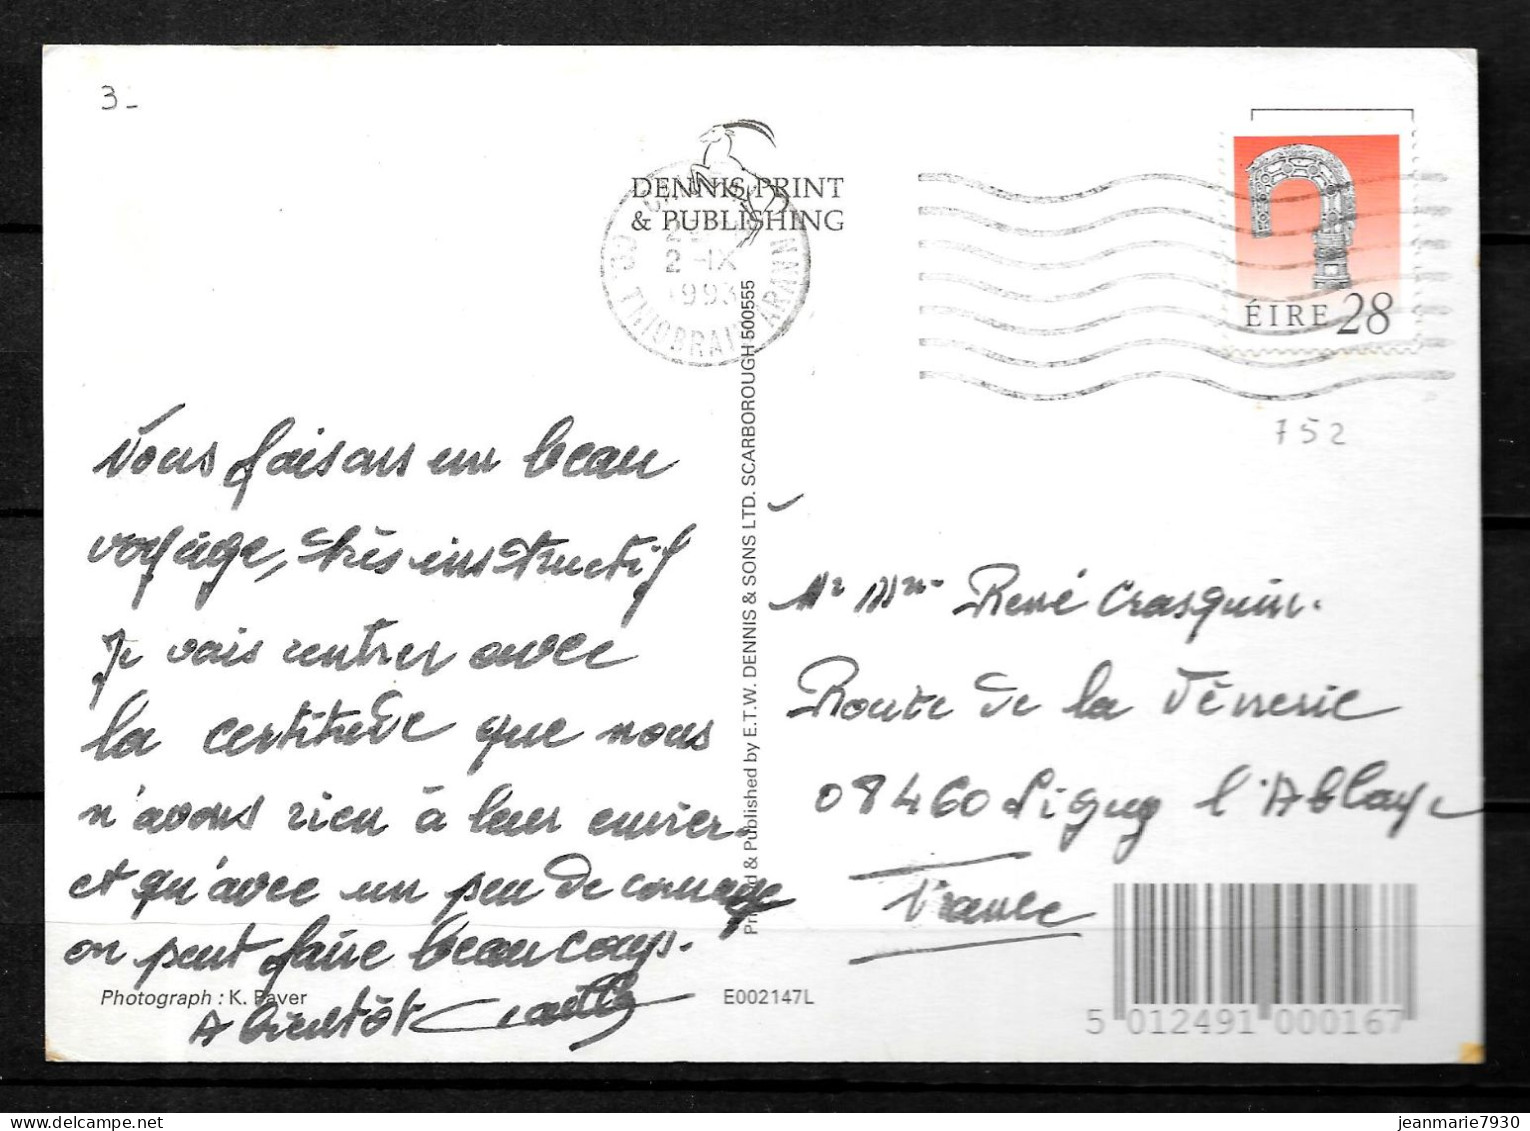 3-
DENNIS PRINT
& PUBLISHING
CO
2-IX
1993
THIOBRAID ARANN
ÉIRE 28
752
Nous faisons un beau
voyage, très instructif
Je vais rentrer avec
la certitude que nous
n'avons rien à leur envier.
et qu'avec un peu de courage
on peut faire beaucoup.
A bientôt
Photograph : K. Paver
Printed & Published by E.T.W. DENNIS & SONS LTD. SCARBOROUGH 500555
Mr Mme René Crasquin.
Route de la Vèrrerie
08460 Signy l'Abbaye
France
E002147L
5 012491 000167
jeanmarie7930